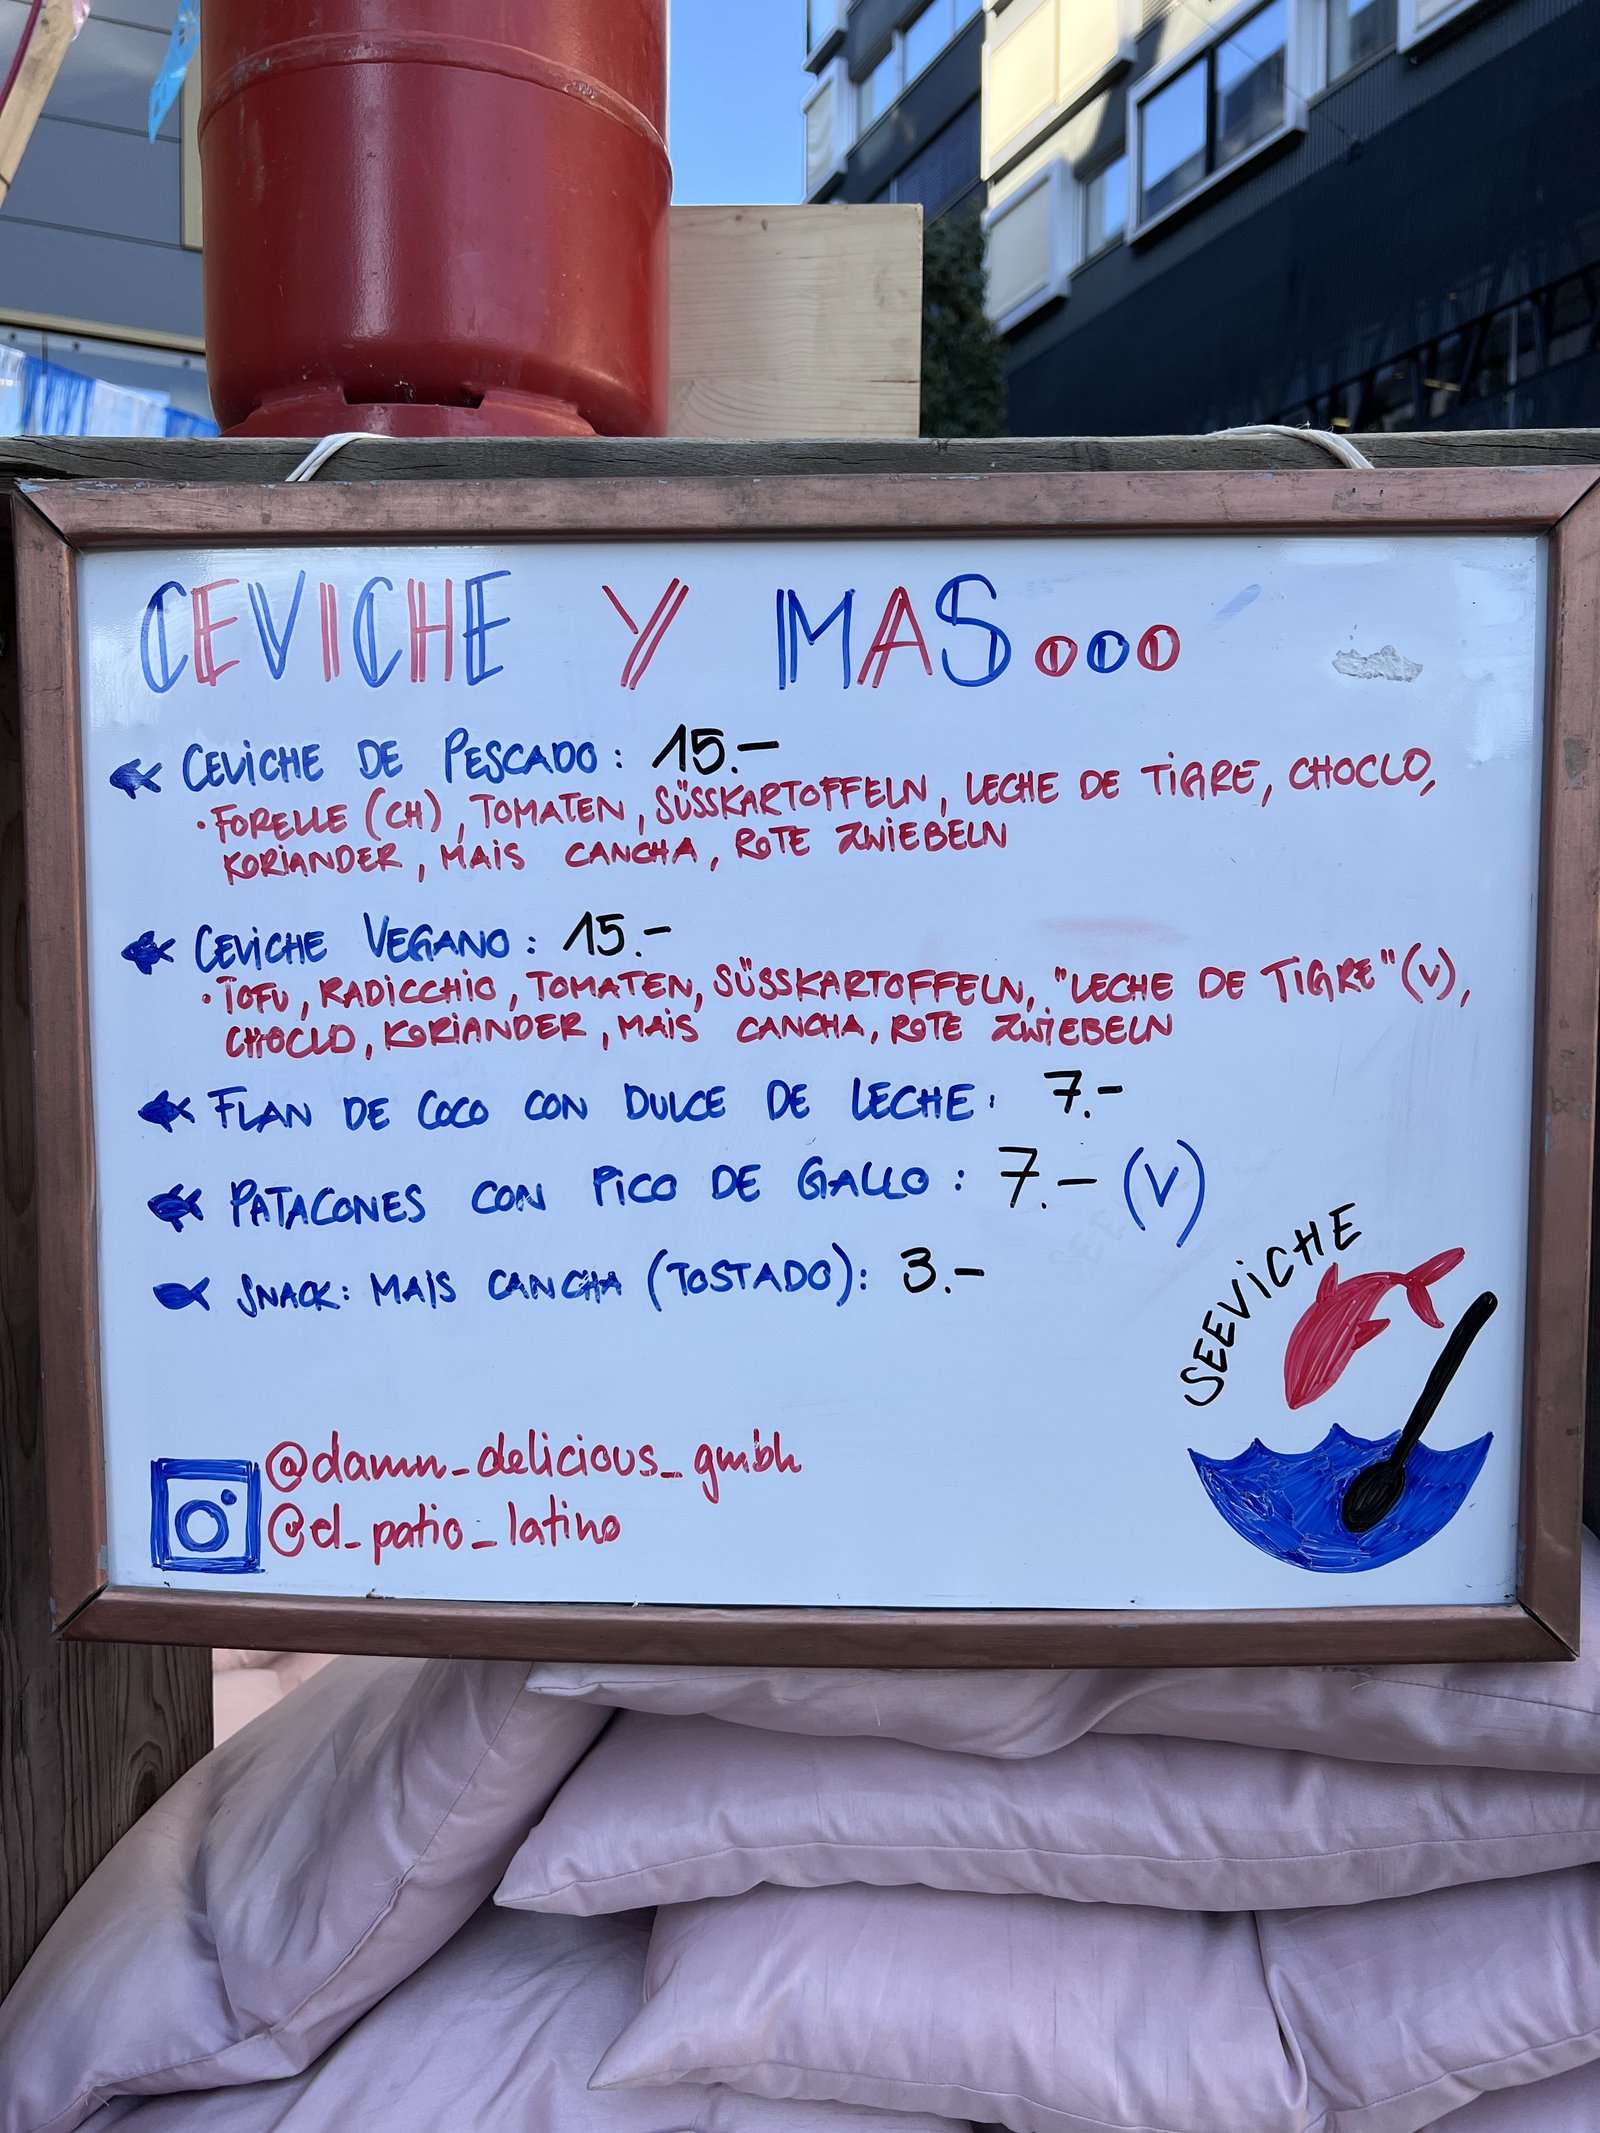 CEVICHE Y MAS...
CEVICHE DE PESCADO: 15.-
· FORELLE (CH), TOMATEN, SÜSSKARTOFFELN, LECHE DE TIGRE, CHOCLO,
KORIANDER, MAIS CANCHA, ROTE ZWIEBELN
CEVICHE VEGANO: 15.-
· TOFU, RADICCHIO, TOMATEN, SÜSSKARTOFFELN, "LECHE DE TIGRE" (V),
CHOCLO, KORIANDER, MAIS CANCHA, ROTE ZWIEBELN
FLAN DE COCO CON DULCE DE LECHE: 7.-
PATACONES CON PICO DE GALLO: 7.- (V)
SNACK: MAIS CANCHA (TOSTADO): 3.-
SEEVICHE
@damn_delicious_gmbh
@el_patio_latino